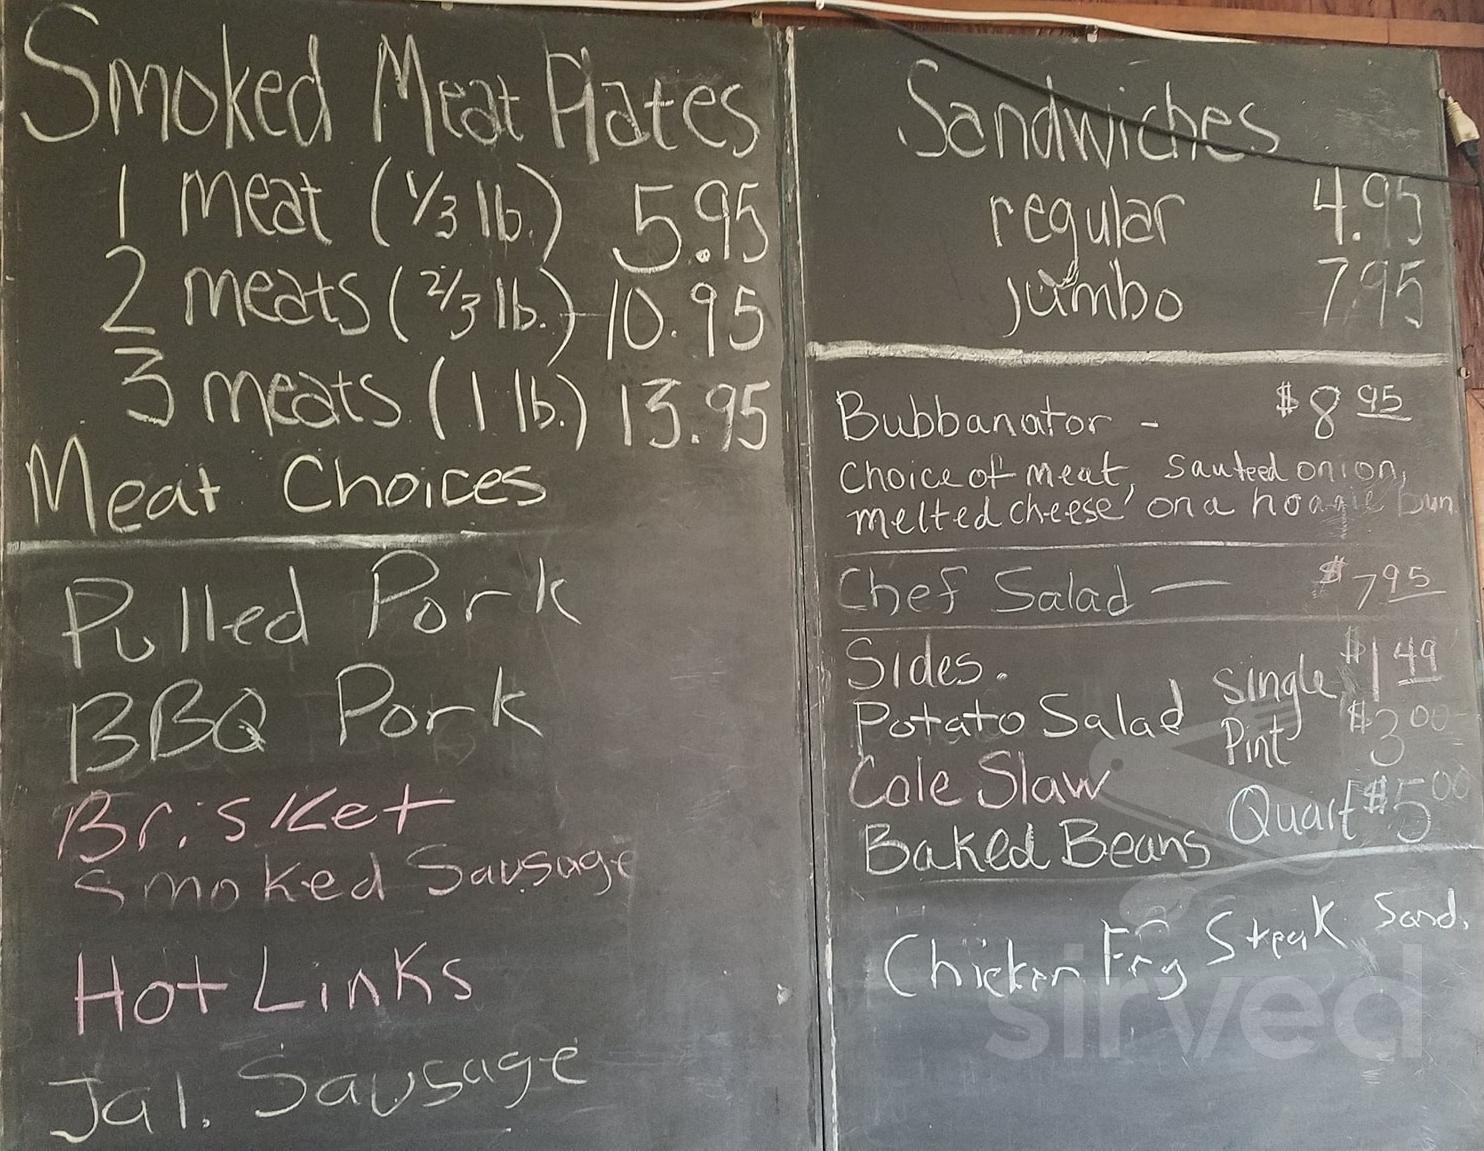 Smoked Meat Plates
1 meat (1/3 lb.) 5.95
2 meats (2/3 lb.) 10.95
3 meats (1 lb.) 13.95
Meat Choices
Pulled Pork
BBQ Pork
Brisket
Smoked Sausage
Hot Links
Jal. Sausage
Sandwiches
regular 4.95
jumbo 7.95
Bubbanator - $8 95
choice of meat, sauteed onion,
melted cheese on a hoagie bun
Chef Salad — $7 95
Sides.
Single $1 49
Potato Salad
Pint $3 00
Cole Slaw
Quart $5 00
Baked Beans
Chicken Fry Steak Sand.
sirved